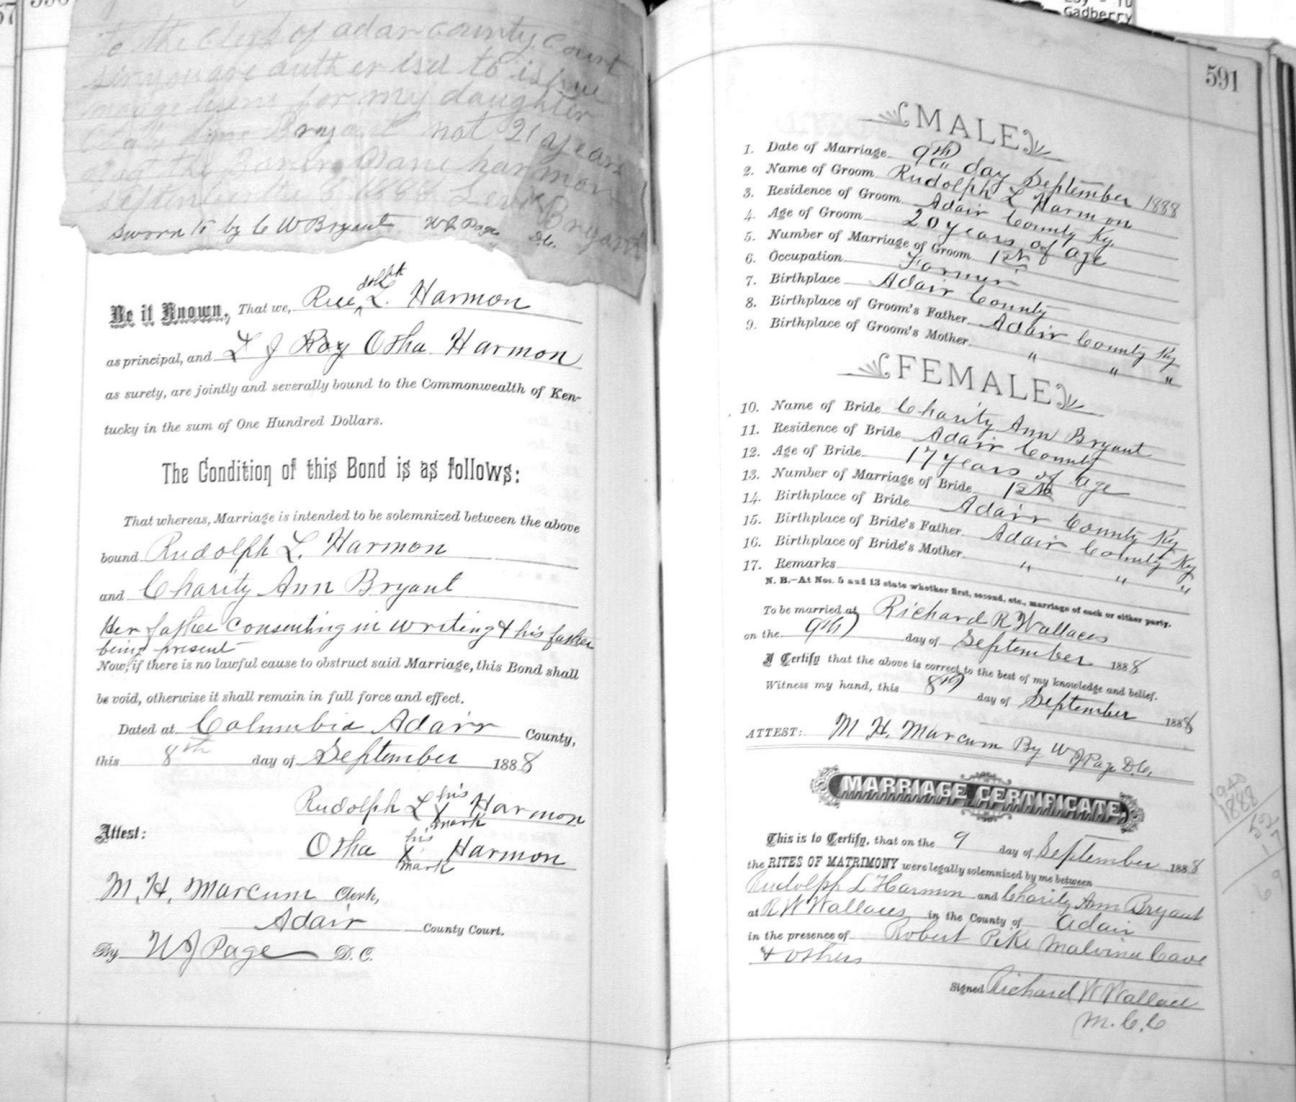 591
To the Clerk of adar county Court
sir you are auther ised to issue
for my daughter
Bryant not 21 years
harmon
Bryant
Sworn to by C W Bryant W J Page DC
Be it Known, That we, Rudolph L. Harmon
as principal, and L J Roy Otha Harmon
as surety, are jointly and severally bound to the Commonwealth of Ken-
tucky in the sum of One Hundred Dollars.
The Condition of this Bond is as follows:
That whereas, Marriage is intended to be solemnized between the above
bound Rudolph L. Harmon
and Charity Ann Bryant
Her father consenting in writing & his father
being present
Now, if there is no lawful cause to obstruct said Marriage, this Bond shall
be void, otherwise it shall remain in full force and effect.
Dated at Columbia Adair County,
this 8th day of September 1888
Rudolph L his X mark Harmon
Attest: Otha his X mark Harmon
M. H. Marcum Clerk,
Adair County Court.
By W J Page D. C.
MALE
1. Date of Marriage 9th day September 1888
2. Name of Groom Rudolph L Harmon
3. Residence of Groom Adair County Ky
4. Age of Groom 20 years of age
5. Number of Marriage of Groom 1st
6. Occupation Farmer
7. Birthplace Adair County
8. Birthplace of Groom's Father Adair County Ky
9. Birthplace of Groom's Mother " " "
FEMALE
10. Name of Bride Charity Ann Bryant
11. Residence of Bride Adair County
12. Age of Bride 17 years of age
13. Number of Marriage of Bride 1st
14. Birthplace of Bride Adair County Ky
15. Birthplace of Bride's Father Adair County Ky
16. Birthplace of Bride's Mother " " "
17. Remarks
N. B.—At Nos. 5 and 13 state whether first, second, etc., marriage of each or either party.
To be married at Richard R Wallaces
on the 9th day of September 1888
I Certify that the above is correct to the best of my knowledge and belief.
Witness my hand, this 8th day of September 1888
ATTEST: M H. Marcum By W J Page D.C.
MARRIAGE CERTIFICATE
This is to Certify, that on the 9 day of September 1888
the RITES OF MATRIMONY were legally solemnized by me between
Rudolph L Harmon and Charity Ann Bryant
at R W Wallaces in the County of Adair
in the presence of Robert Pike Malvina Cave
& others
Signed Richard W Wallace
M. C. C
Gadberry
1888